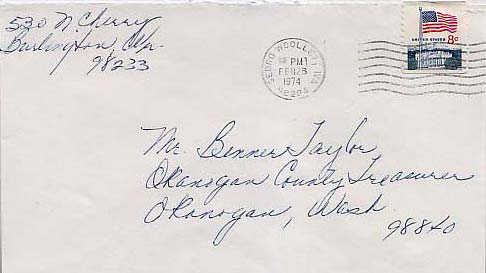 530 N. Cherry
Burlington, Wa.
98233
SEDRO WOOLLEY WA
PM
FEB 26
1974
98284
UNITED STATES 8c
Mr. Benner Taylor
Okanogan County Treasurer
Okanogan, Wash.
98840